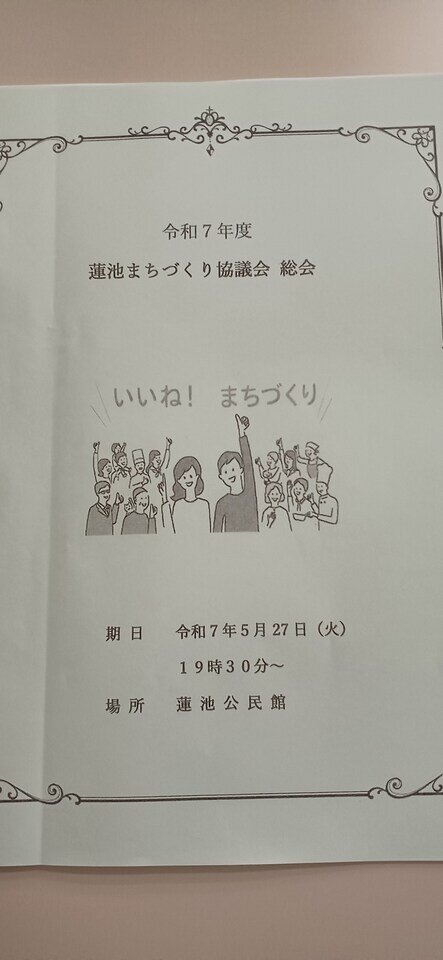 令和７年度
蓮池まちづくり協議会 総会
いいね！ まちづくり
期日 令和７年５月27日（火）
１９時３０分～
場所 蓮池公民館